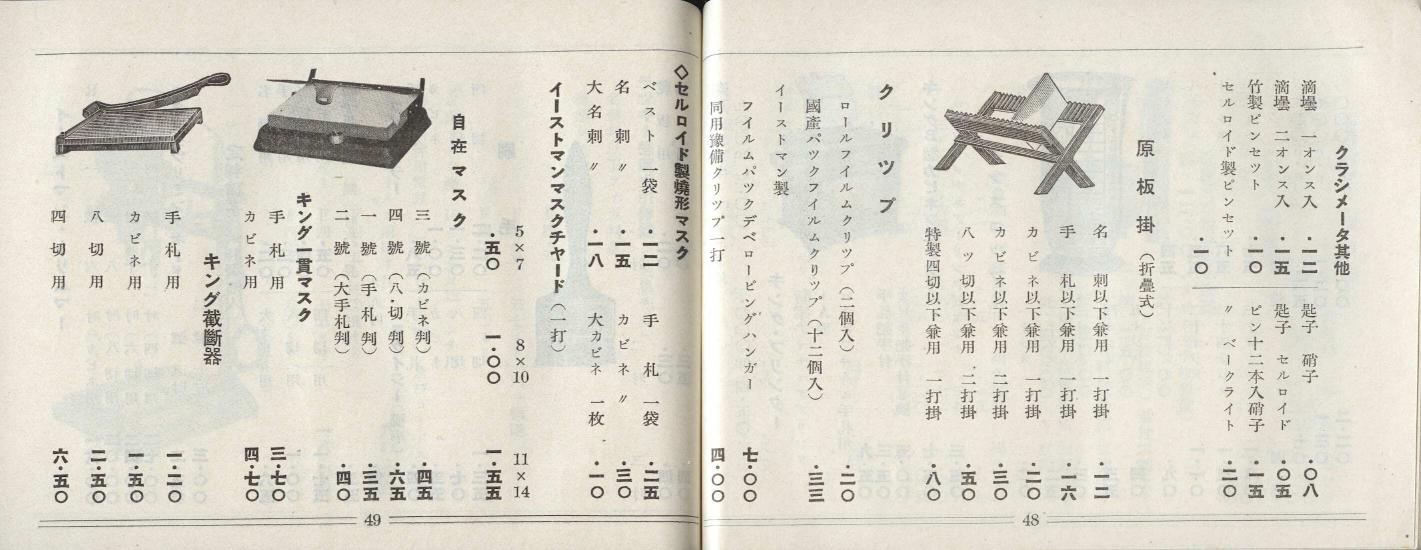 クラシメータ其他
滴壜 一オンス入 ・一二
滴壜 二オンス入 ・一五
竹製ピンセツト ・一〇
セルロイド製ピンセツト ・一〇
匙子 硝子 ・〇八
匙子 セルロイド ・〇五
ピン十二本入硝子 ・一五
〃 ベークライト ・二〇
原板掛(折疊式)
名刺以下兼用 一打掛 ・一二
手札以下兼用 一打掛 ・一六
カビネ以下兼用 一打掛 ・二〇
カビネ以下兼用 二打掛 ・三〇
八ツ切以下兼用 二打掛 ・五〇
特製四切以下兼用 一打掛 ・八〇
クリツプ
ロールフイルムクリツプ(二個入) ・二〇
國産パツクフイルムクリツプ(十二個入) ・三三
イーストマン製
フイルムパツクデベロービングハンガー 七・〇〇
同用豫備クリツプ一打 四・〇〇
48
◇セルロイド製燒形マスク
ベスト一袋 ・一二
名刺〃 ・一五
大名刺〃 ・一八
手札一袋 ・二五
カビネ〃 ・三〇
大カビネ一枚 ・一〇
イーストマンマスクチヤード(一打)
5×7 8×10 11×14
・五〇 一・〇〇 一・五五
自在マスク
三號(カビネ判) ・四五
四號(八ツ切判) ・六五
一號(手札判) ・三五
二號(大手札判) ・四〇
キング一貫マスク
手札用 三・七〇
カビネ用 四・七〇
キング截斷器
手札用 一・二〇
カビネ用 一・五〇
八切用 二・五〇
四切用 六・五〇
49